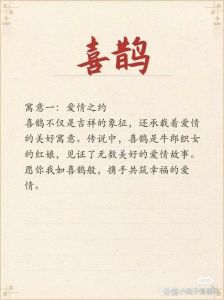 喜鹊
寓意一：爱情之约
喜鹊不仅是吉祥的象征，还承载着爱情
的美好寓意。传说中，喜鹊是牛郎织女
的红娘，见证了无数美好的爱情故事。
愿你我如喜鹊般，携手共筑幸福的爱
情。